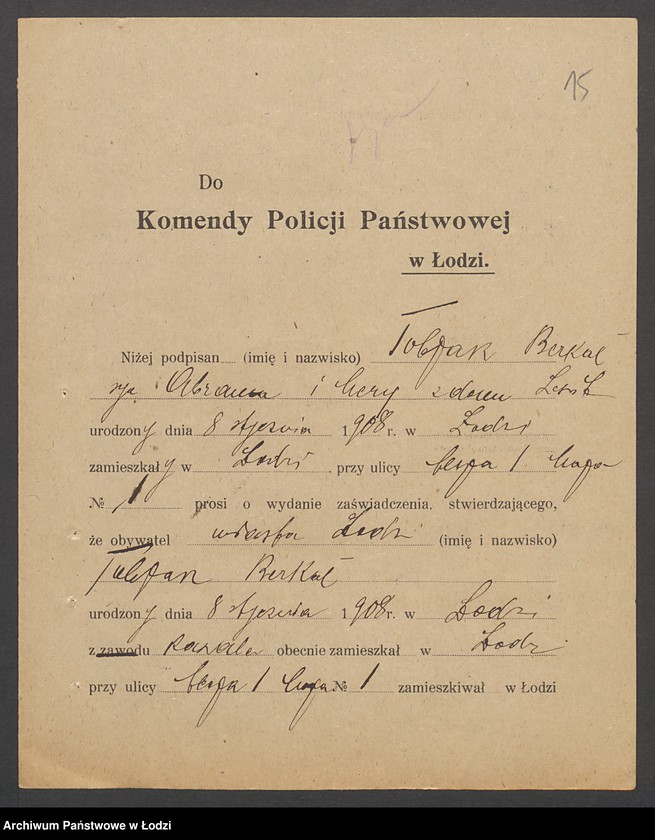 15
Do
Komendy Policji Państwowej
w Łodzi.
Niżej podpisan (imię i nazwisko) Tobjak Berkuł
i z domu
urodzony dnia 8 stycznia 1908 r. w Łodzi
zamieszkały w Łodzi przy ulicy 1 Maja
№ 1 prosi o wydanie zaświadczenia, stwierdzającego,
że obywatel miasta Łodzi (imię i nazwisko)
Berkuł
urodzony dnia 8 stycznia 1908 r. w Łodzi
z zawodu kawaler obecnie zamieszkał w Łodzi
przy ulicy 1 Maja № 1 zamieszkiwał w Łodzi
Archiwum Państwowe w Łodzi